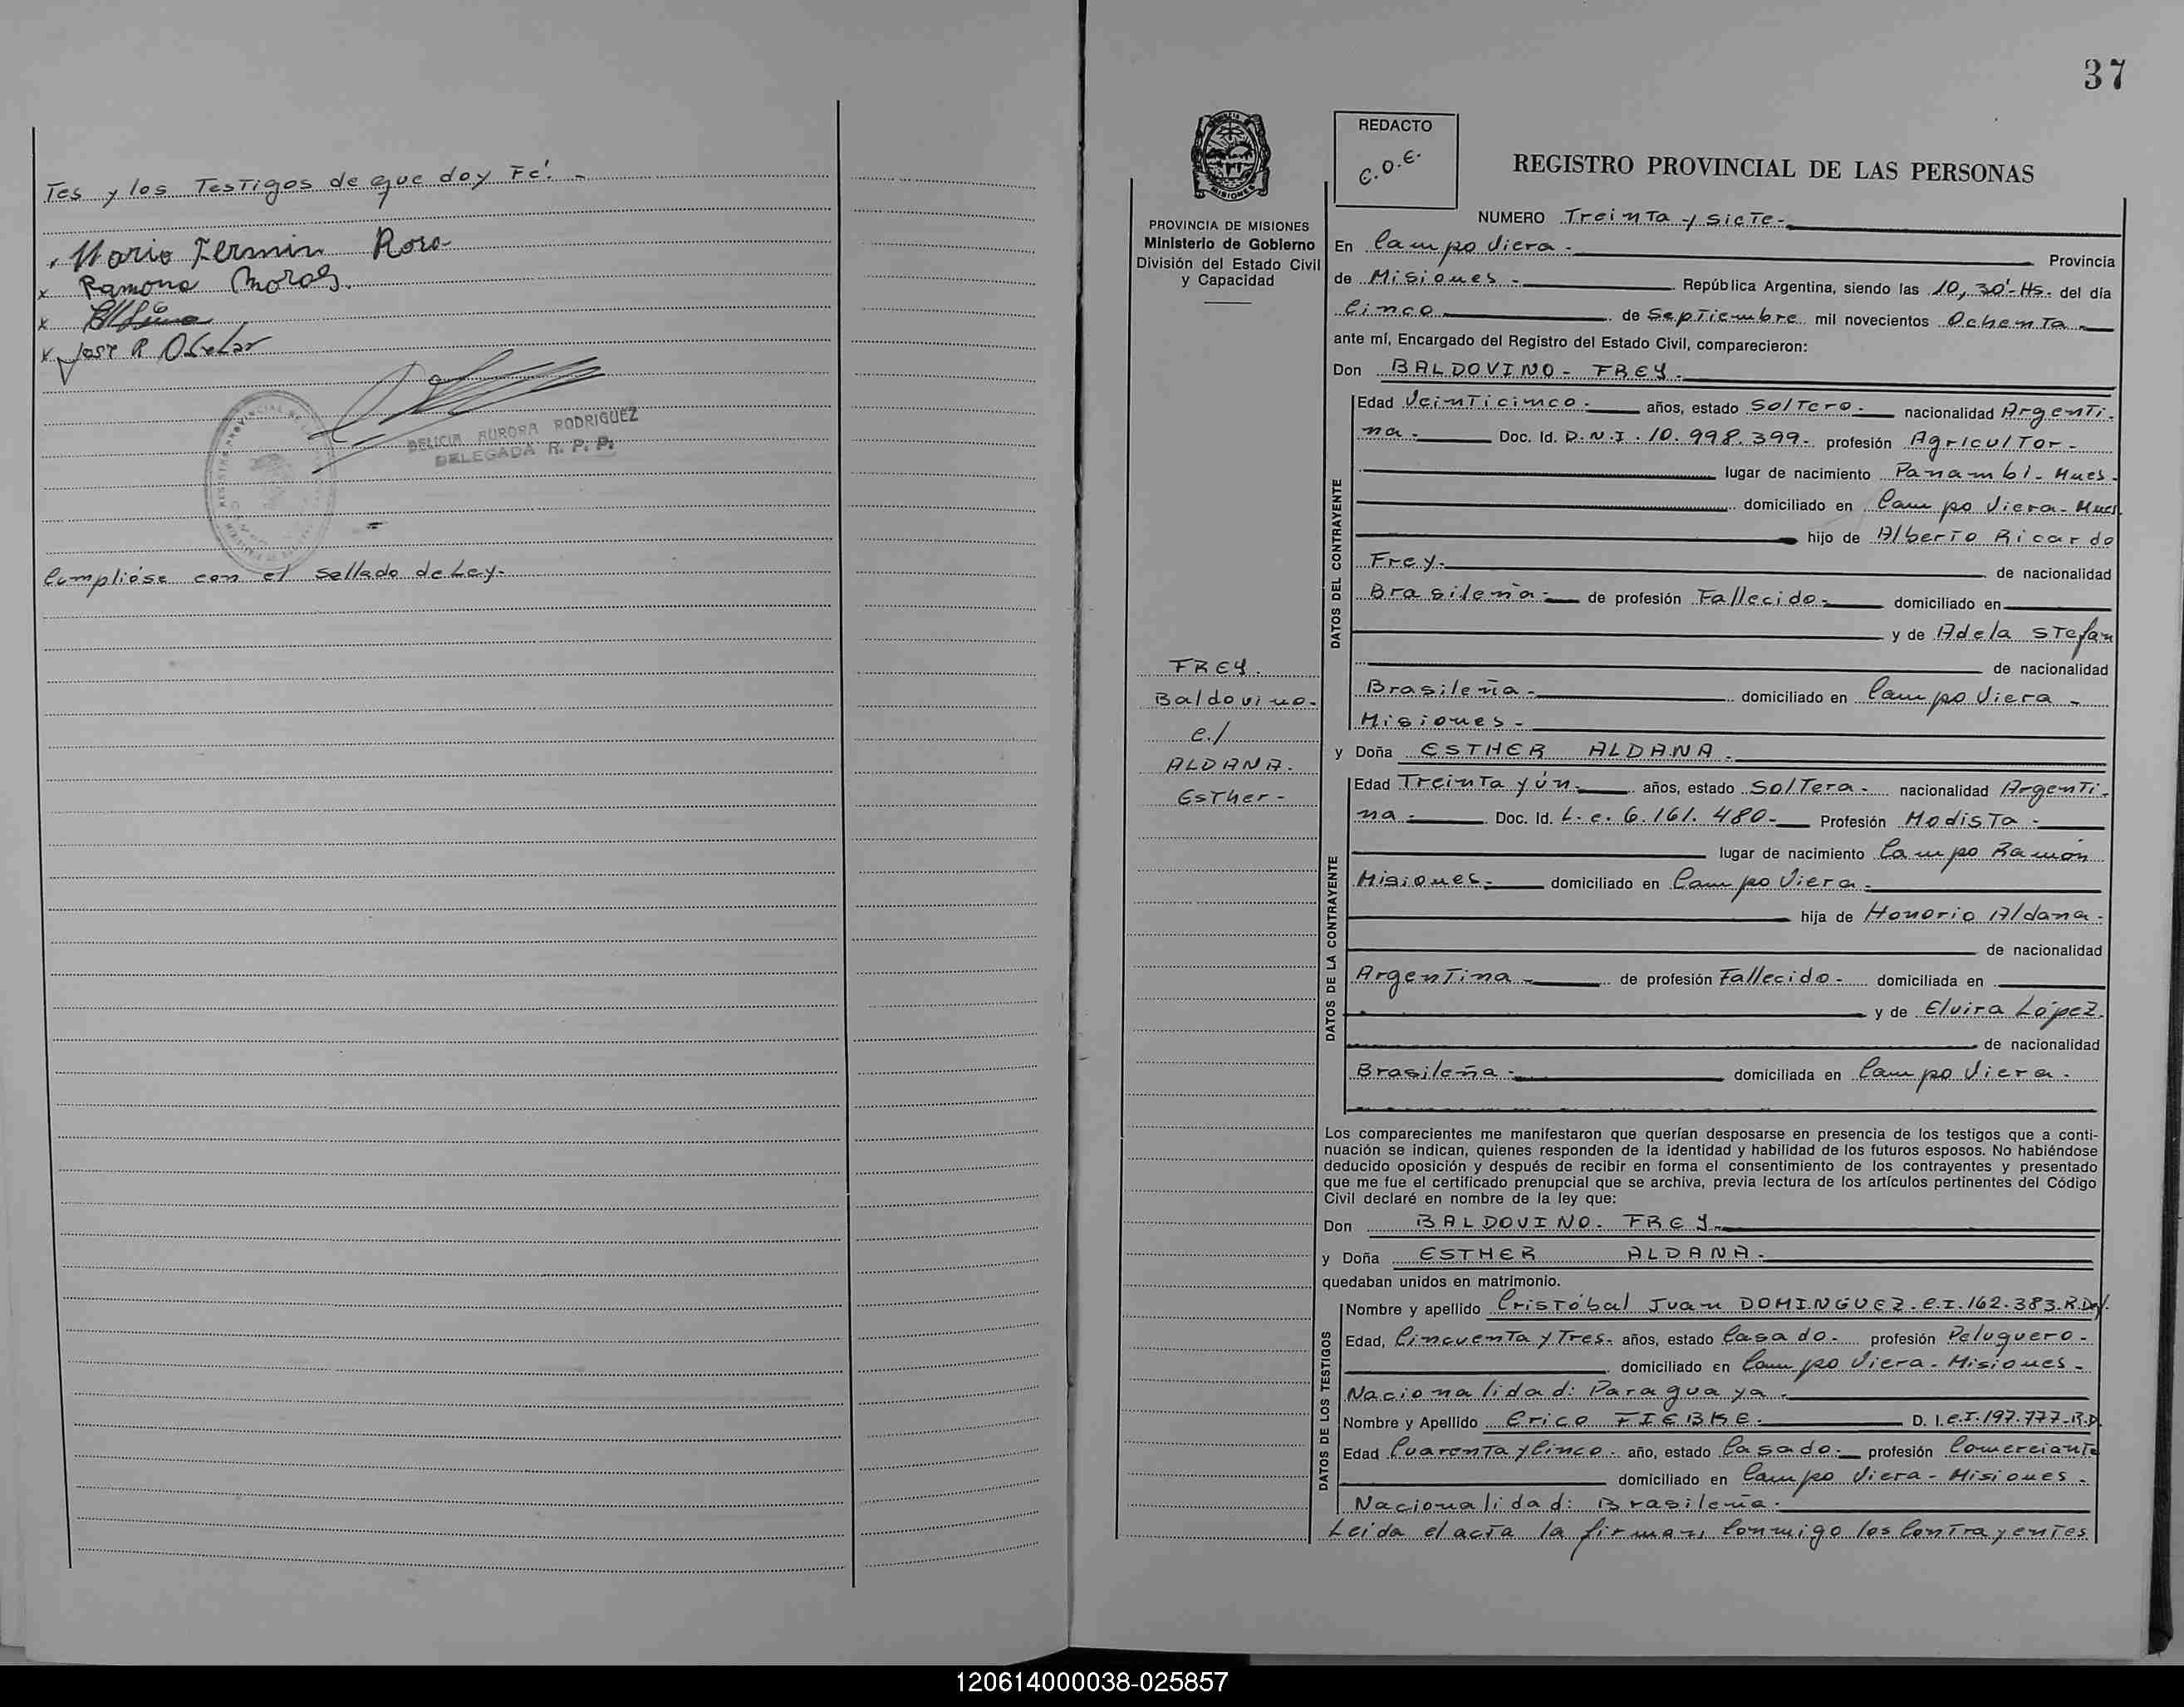 Tes y los Testigos de que doy Fé. -
Mario Fermin Roso
x Ramona Morais.
x
x José R
DELICIA AURORA RODRIGUEZ
DELEGADA R. P. P.
Cumplióse con el sellado de Ley-
37
REDACTO
C.O.E.
REGISTRO PROVINCIAL DE LAS PERSONAS
PROVINCIA DE MISIONES
Ministerio de Gobierno
División del Estado Civil
y Capacidad
FREY.
Baldovino-
c./
ALDANA.
Esther-
NUMERO Treinta y siete-
En Campo Viera- Provincia
de Misiones- República Argentina, siendo las 10,30'-Hs. del día
Cinco de Septiembre mil novecientos Ochenta-
ante mí, Encargado del Registro del Estado Civil, comparecieron:
Don BALDOVINO- FREY-
DATOS DEL CONTRAYENTE
Edad Veinticinco- años, estado Soltero- nacionalidad Argenti-
na- Doc. Id. D.N.I. 10.998.399- profesión Agricultor-
lugar de nacimiento Panambí- Mnes-
domiciliado en Campo Viera- Mnes
hijo de Alberto Ricardo
Frey- de nacionalidad
Brasileña- de profesión Fallecido- domiciliado en
y de Adela Stefan
de nacionalidad
Brasileña- domiciliado en Campo Viera-
Misiones-
y Doña ESTHER ALDANA-
DATOS DE LA CONTRAYENTE
Edad Treinta y ún- años, estado Soltera- nacionalidad Argenti-
na- Doc. Id. L.C. 6.161.480- Profesión Modista-
lugar de nacimiento Campo Ramón
Misiones- domiciliado en Campo Viera-
hija de Honorio Aldana-
de nacionalidad
Argentina- de profesión Fallecido- domiciliada en
y de Elvira López.
de nacionalidad
Brasileña- domiciliada en Campo Viera-
Los comparecientes me manifestaron que querían desposarse en presencia de los testigos que a conti-
nuación se indican, quienes responden de la identidad y habilidad de los futuros esposos. No habiéndose
deducido oposición y después de recibir en forma el consentimiento de los contrayentes y presentado
que me fue el certificado prenupcial que se archiva, previa lectura de los artículos pertinentes del Código
Civil declaré en nombre de la ley que:
Don BALDOVINO- FREY-
y Doña ESTHER ALDANA-
quedaban unidos en matrimonio.
DATOS DE LOS TESTIGOS
Nombre y apellido Cristóbal Juan DOMINGUEZ- C.I. 162.383-R.
Edad, Cincuenta y Tres- años, estado Casado- profesión Peluquero-
domiciliado en Campo Viera- Misiones-
Nacionalidad: Paraguaya-
Nombre y Apellido Erico FIEBKE- D. I. C.I. 197.777-R.P.
Edad Cuarenta y Cinco- año, estado Casado- profesión Comerciante
domiciliado en Campo Viera- Misiones-
Nacionalidad: Brasileña-
Leida el acta la firman Conmigo los Contrayentes
120614000038-025857